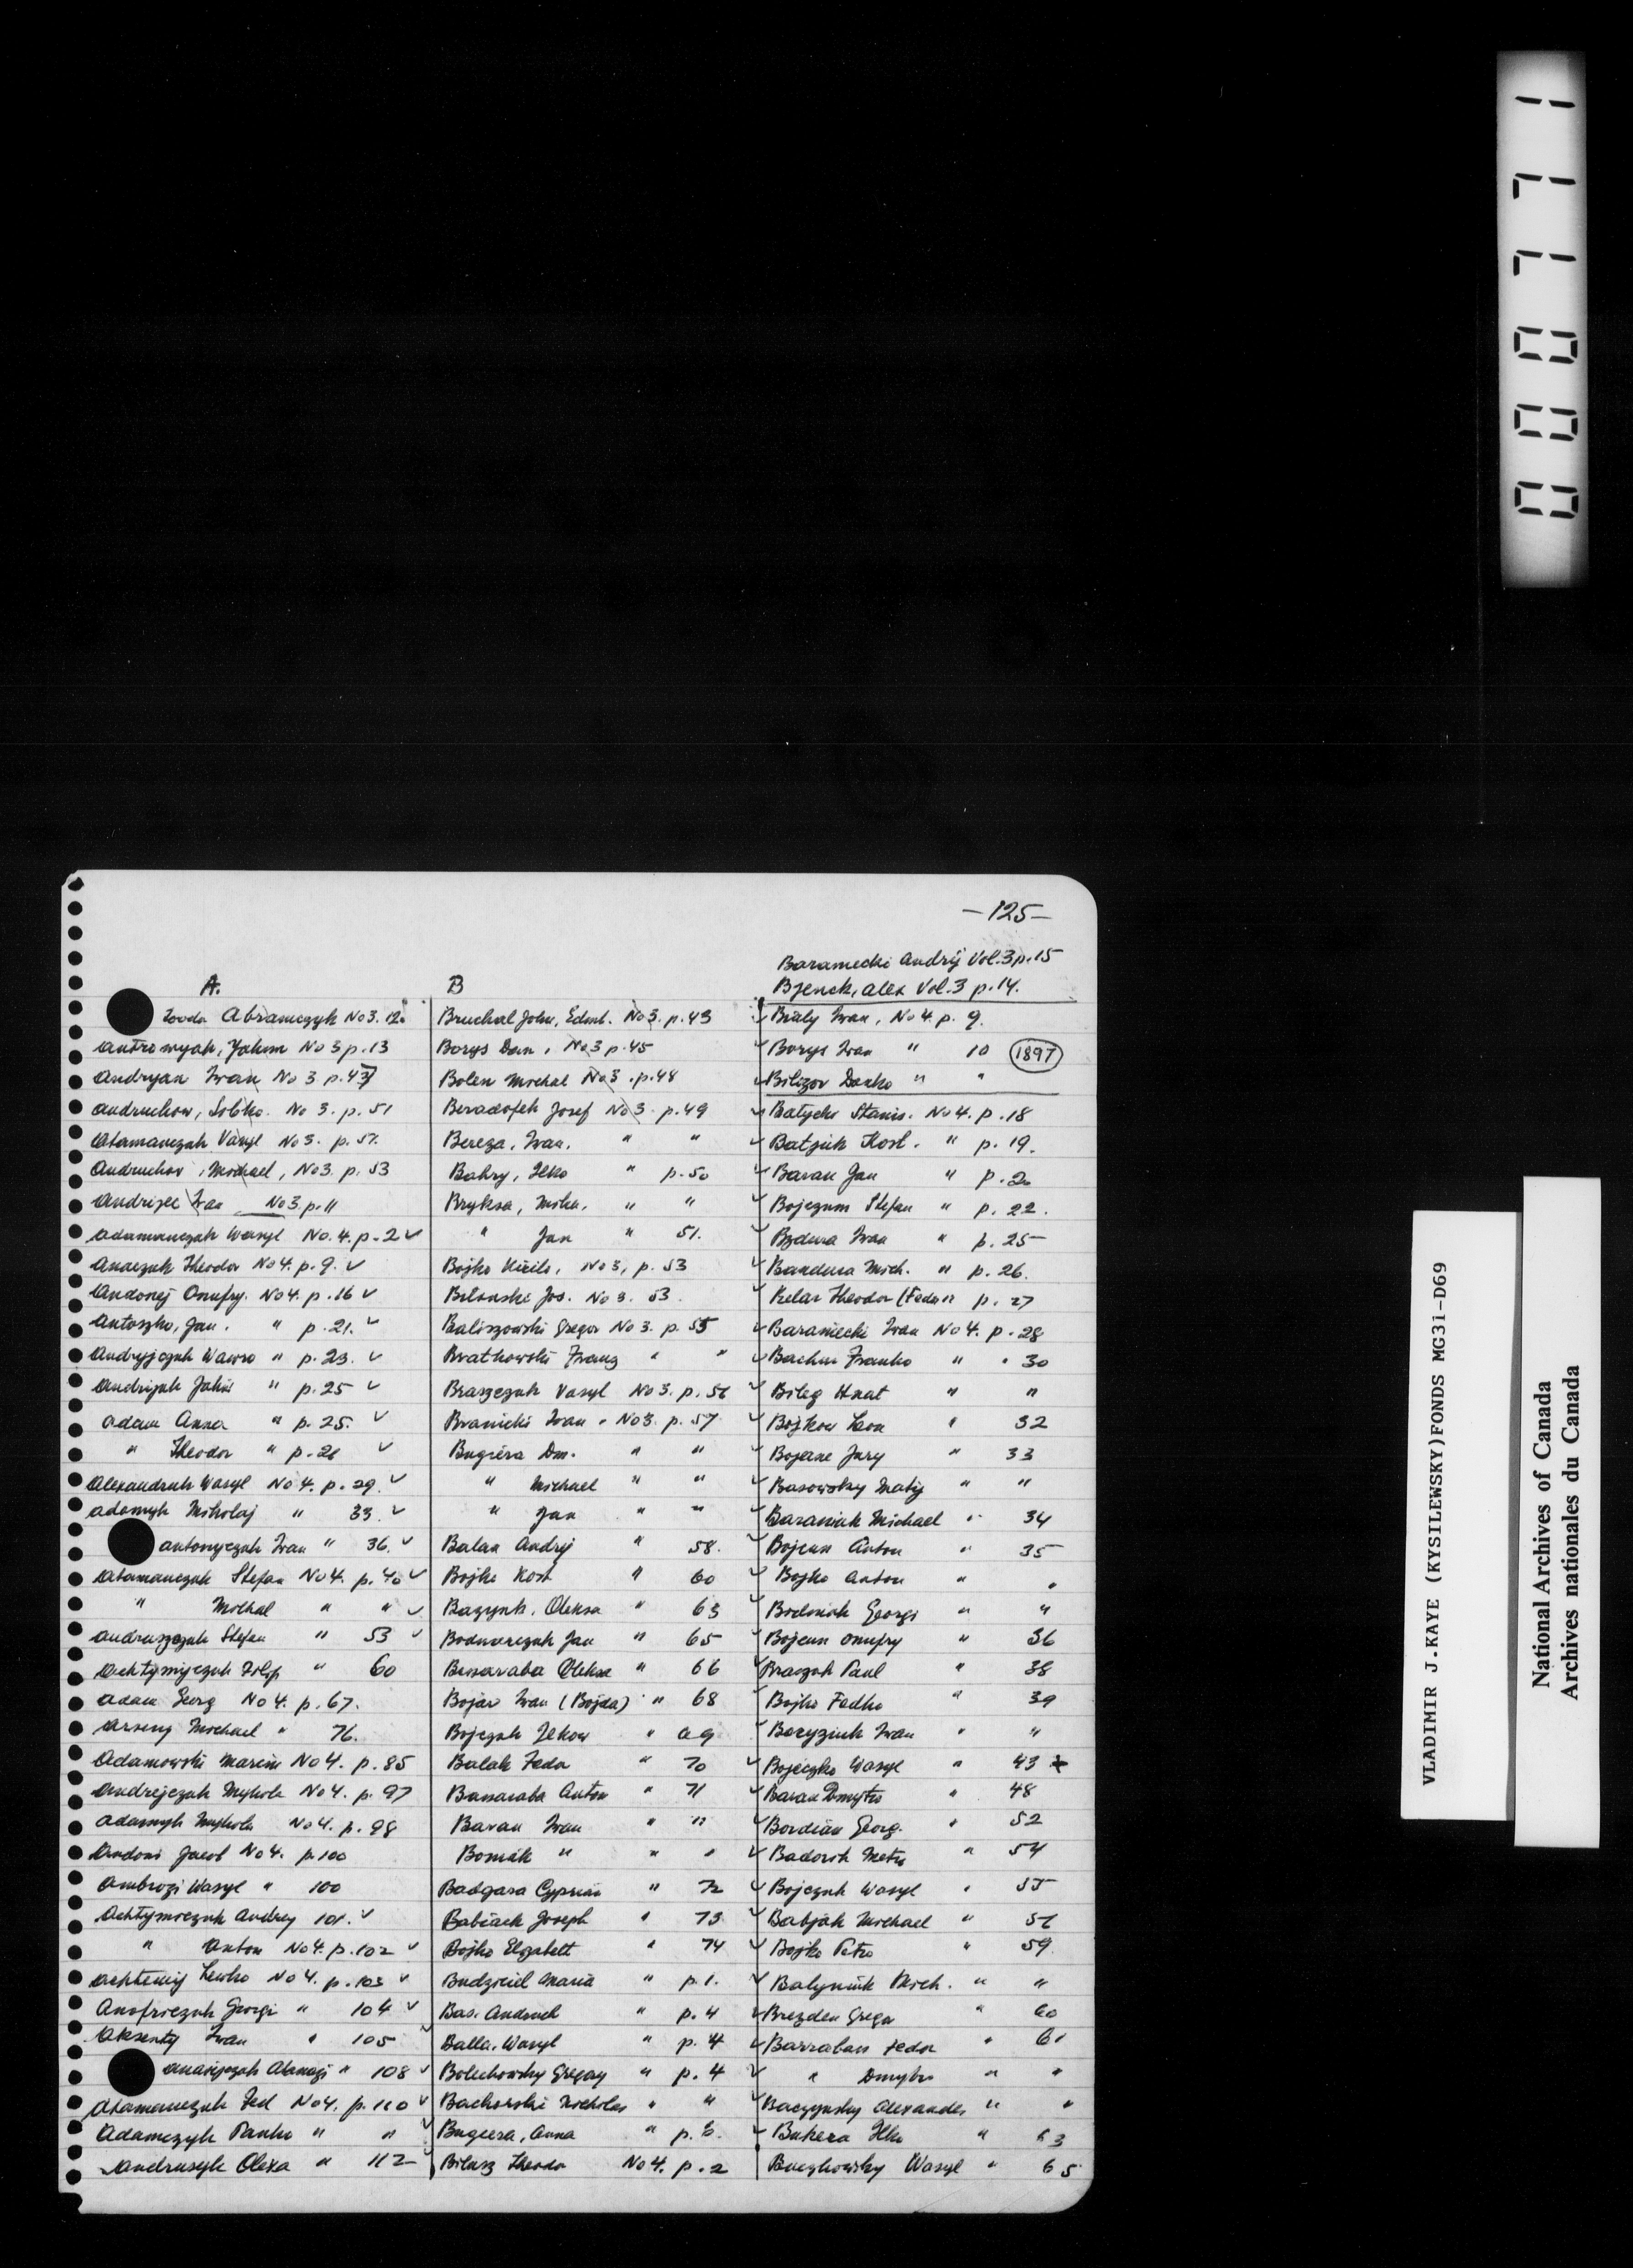 -125-
Baraniecki Andrij Vol. 3 p. 15
Bjenck, Alex Vol. 3 p. 14.
A.
Abramczyk No 3. 12.
Jakim No 3 p. 13
Andryan Iwan No 3 p. 43
Andruchow, No 3. p. 51
Atamanczuk Vasyl No 3. p. 52
Andruchow, Michael, No 3. p. 53
Andrizec Iwan No 3. p. 11
Adamanczuk Wasyl No. 4. p. 2 ✓
Theodor No 4. p. 9. ✓
Andonej Onufry. No 4. p. 16 ✓
Antoszko, Jan. " p. 21. ✓
Andryjczuk Wawro " p. 23. ✓
Andrijuk " p. 25 ✓
Adam Anna " p. 25. ✓
" Theodor " p. 26 ✓
Alexandruk Wasyl No 4. p. 29. ✓
Adamyk Mikolaj " 33. ✓
Antonyczuk Iwan " 36. ✓
Atamanczuk Stefan No 4. p. 40 ✓
" Michal " " ✓
Andruszczuk Stefan " 53 ✓
" 60
Adam Georg No 4. p. 67.
Arseny Michael " 76.
Adamowski Marcin No 4. p. 85
Andrejczuk Mykola No 4. p. 97
Adamyk Mykola No 4. p. 98
Andoni Jacob No 4. p. 100
Ambrozi Wasyl " 100
Achtymiczuk Andrey 101. ✓
" Anton No 4. p. 102 ✓
Achtemij No 4. p. 103 ✓
Georgi " 104 ✓
Aksenty Iwan " 105
" 108 ✓
Atamanczuk Fed No 4. p. 110 ✓
Adamczyk Panko " "
Andrusyk Olexa " 112
B
Bruchal John, Edmt. No 3. p. 43
Borys Dan, No 3 p. 45
Bolen Michal No 3. p. 48
Josef No 3 p. 49
Bereza, Iwan. " "
Bahry, Ilko " p. 50
Bryksa, " "
" Jan " 51.
Bojko Kirilo, No 3, p. 53
Jos. No 3. 53.
Baliszowski Gregor No 3. p. 55
Bratkowski Franz " "
Braszczuk Vasyl No 3. p. 56
Branicki Iwan. No 3. p. 57
Bugiera Dm. " "
" Michael " "
" Jan " "
Balan Andrij " 58.
Bojko Kost " 60
Oleksa " 63
Bodnarczuk Jan " 65
Bessaraba Oleksa " 66
Bojar Iwan (Bojda) " 68
Bojczuk Ilkow " 69
Balak Feda " 70
Bassaraba Anton " 71
Baran Iwan " "
Bomak " " "
Badgara Cyprian " 72
Babiack Joseph " 73
Bojko Elizabett " 74
Maria " p. 1.
Bas. " p. 4
Balla, Wasyl " p. 4
Bolechowsky Gregory " p. 4
Bachorski Nicholas " "
Bugiera, Anna " p. 6.
Bilusz Theodor No 4. p. 2
Bialy Iwan, No 4. p. 9.
Borys Iwan " 10 (1897)
Bilizor Danko " "
Batycki Stanis. No 4. p. 18
Batjuk Kost. " p. 19.
Baran Jan " p. 20
Stefan " p. 22.
Bzdura Iwan " p. 25
Bandura Mich. " p. 26.
Theodor (Fedor) " p. 27
Baraniecki Iwan No 4. p. 28
Franko " " 30
Bileg Hnat " "
Bojkow Leon " 32
Jury " 33
Basowsky Matij " "
Baraniuk Michael " 34
Anton " 35
Bojko Anton " "
Georgi " "
Onufry " 36
Paul " 38
Bojko Fedko " 39
Iwan " "
Bojeczko Wasyl " 43
Baran Dmytro " 48
Bordian Georg. " 52
Metro " 54
Bojczuk Wasyl " 55
Babjak Michael " 56
Bojko Petro " 59.
Balyniuk Mich. " "
Brezden Gregor " 60
Barraban Fedor " 61
" Dmytro " "
Baczynsky Alexander " "
Bukera Ilko " 63
Wasyl " 65
000771
VLADIMIR J.KAYE (KYSILEWSKY)FONDS MG31-D69
National Archives of Canada
Archives nationales du Canada